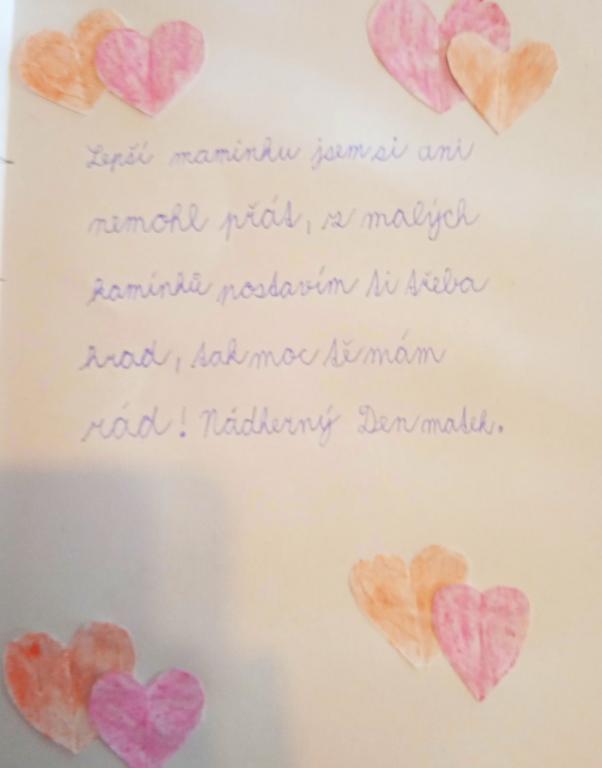 Lepší maminku jsem si ani
nemohl přát, z malých
kamínků postavím ti třeba
hrad, tak moc tě mám
rád! Nádherný Den matek.